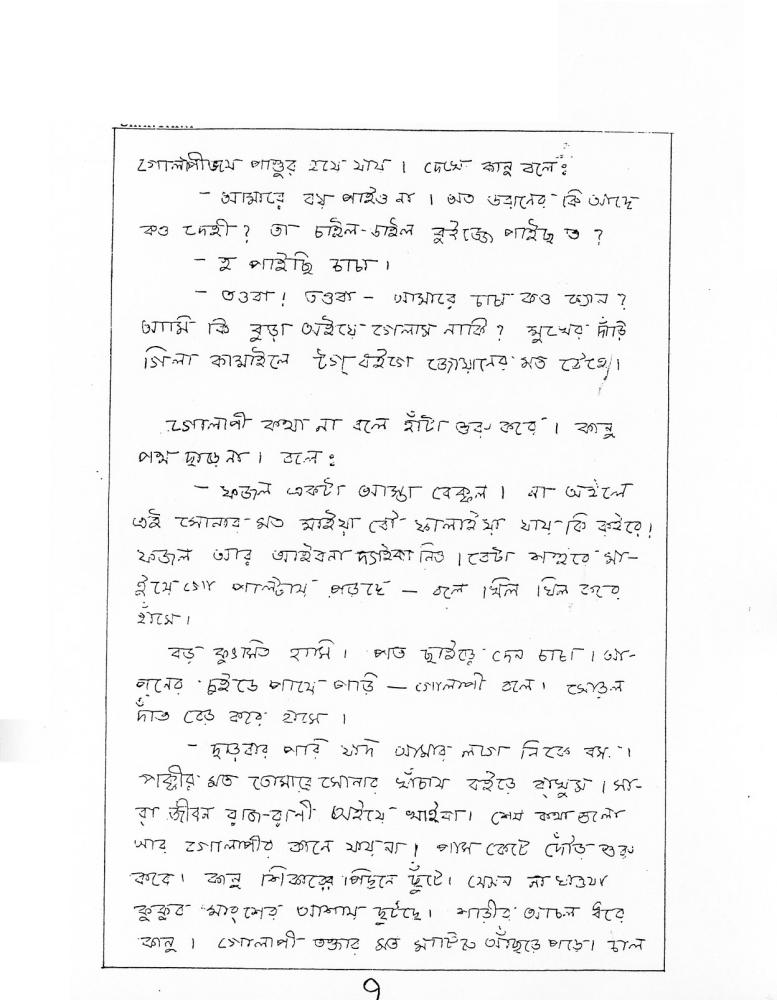 গোলাপীভয়ে পাণ্ডুর হয়ে যায় । দেখে কানু বলে :
– আমারে বয় পাইও না । অত ডরানের কি আছে
কও দেহী ? তা চাইল-ডাইল বুইজ্জে পাইছ ত ?
– হ পাইছি চাচা ।
– তওবা ! তওবা – আমারে চাচা কও ক্যান ?
আমি কি বুড়া অইয়ে গেলাম নাকি ? মুখের দাঁড়ি
গিলা কামাইলে জোয়ানের মত ঠেহে ।
গোলাপী কথা না বলে হাঁটা শুরু করে । কানু
পথ ছাড়ে না । বলে :
– ফজল একটা আস্তা বেক্কল । না অইলে
এই সোনার মত মাইয়া বৌ ফালাইয়া যায় কি কইরে !
ফজল আর আইবনা দ্যাইকা নিও । বেটা শহরে মা-
ইয়ে গো পাল্টায় পড়ছে – বলে খিল খিল করে
হাঁসে ।
বড় কুৎসিত হাসি । পত ছাইড়ে দেন চাচা । আ-
পনের দুইডে পায়ে পাড়ি – গোলাপী বলে । মোড়ল
দাঁত বের করে হাসে ।
– ছাড়বার পারি যদি আমার লগে নিকে বস ।
পঙ্খীর মত তোমারে সোনার খাঁচায় বইরে রাখুম । সা-
রা জীবন রাজ-রাণী অইয়ে খাইবা । শেষ কথা গুলো
আর গোলাপীর কানে যায় না । পাস কেটে দৌঁড় শুরু
করে । কানু শিকারের পিছনে ছুঁটে । যেমন না খাওয়া
কুকুর মাংসের আশায় ছুটছে । শাড়ীর আচল ধরে
কানু । গোলাপী তক্তার মত মাটিতে আঁছড়ে পড়ে । চাল
৭